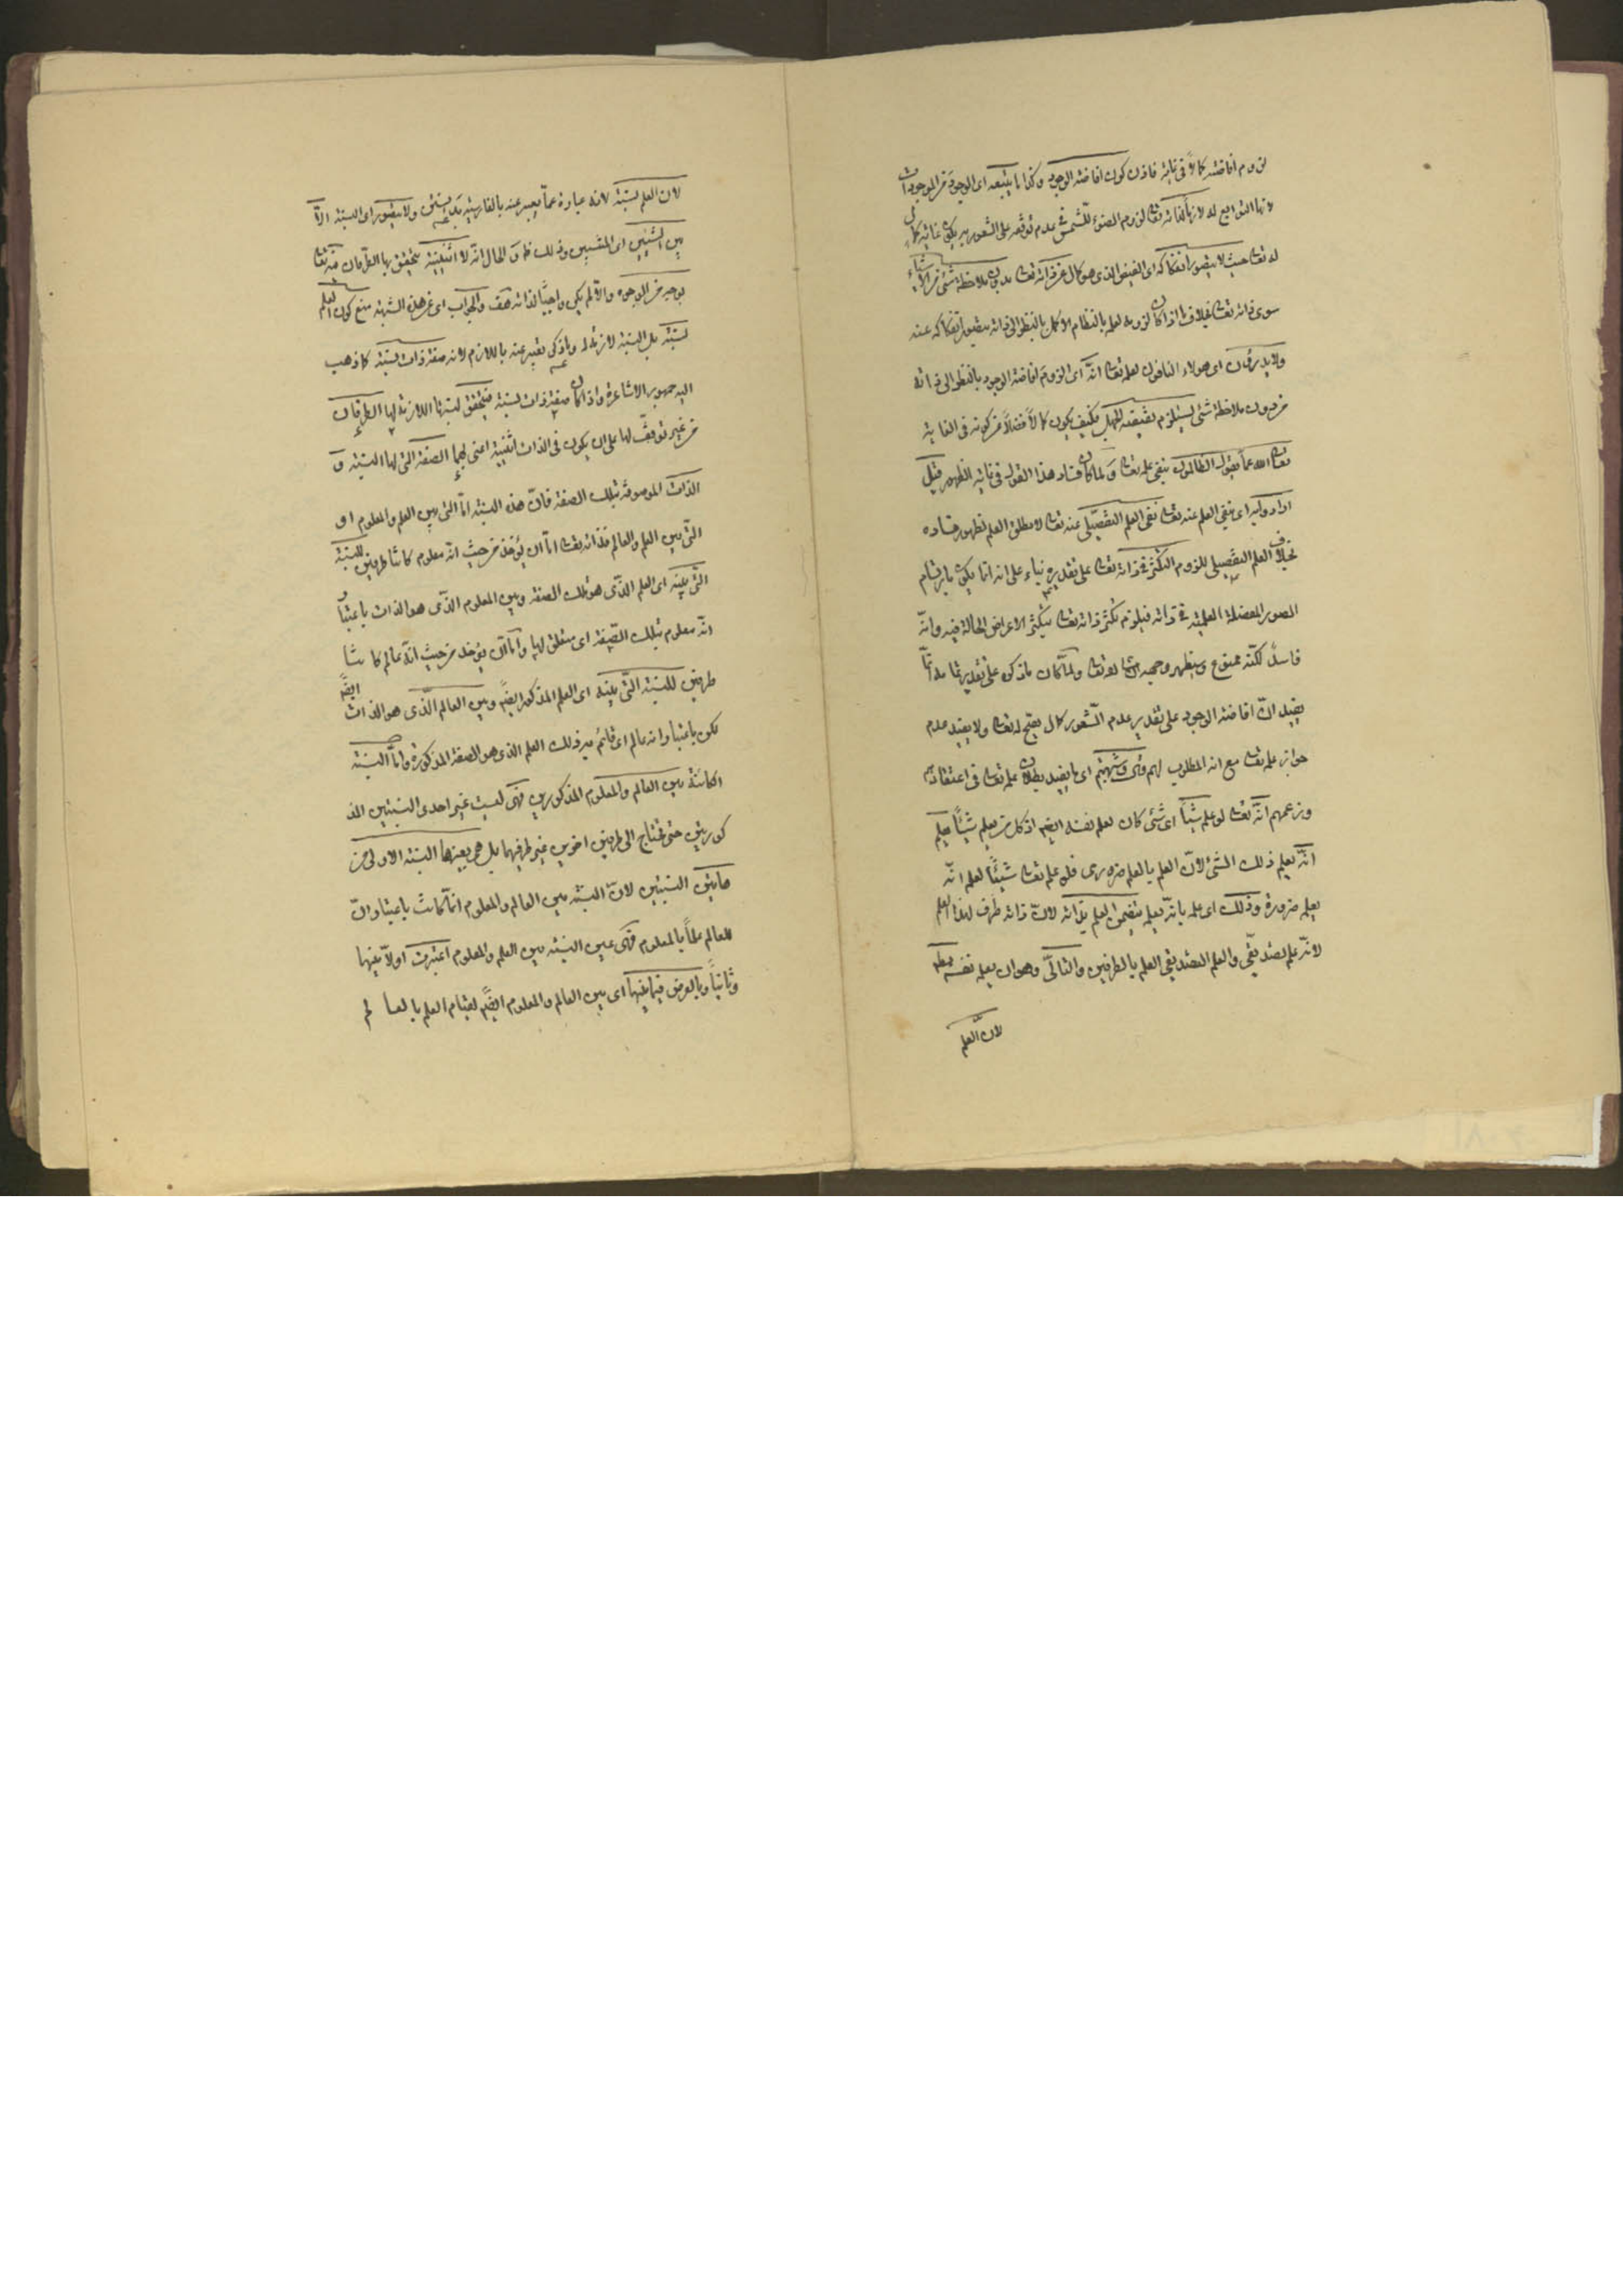 لزوم افاضته كمالا فى غاية فاذن كون افاضته الوجود وكذا ما يتبعه اى الوجود من الموجودات
لانها التوابع له لازما لذاته تعالى لزوم الضوء للشمس فى عدم توقفه على الشعور به يكون غاية كمال
له تعالى حيث لا يتصور انفكاكه اى الفيض الذى هو كمال عن ذاته تعالى بدون ملاحظة شئ من الاشياء
سوى ذاته تعالى بخلاف ما اذا كان لزومه لعلمه بالنظام الاكمل بالنظر الى ذاته يتصور انفكاكه عنه
ولا يدرون اى هولاء النافون لعلمه تعالى انه اى لزوم افاضة الوجود بالنظر الى ذاته
من دون ملاحظة شئ يستلزم نقيضته الجهل فكيف يكون كمالا فضلا من كونه فى الغاية
تعالى الله عما يقول الظالمون بنفى علمه تعالى ولما كان فساد هذا القول فى غاية الظهور قيل
ارادوا به اى بنفى العلم عنه تعالى نفى العلم التفصيلى عنه تعالى لا مطلق العلم لظهور فساده
بخلاف العلم التفصيلى للزوم التكثر فى ذاته تعالى على تقديره بناء على انه انما يكون بارتسام
الصور المفصلة العلمية فى ذاته فيلزم تكثر ذاته تعالى بتكثر الاعراض الحالة فيه وانه
فاسد لكنه ممنوع سيظهر وجهه انشا الله تعالى ولما كان ما ذكره على تقدير تمامه انما
يفيد ان افاضة الوجود على تقدير عدم الشعور كمال يقبح له تعالى ولا يفيد عدم
جواز علمه تعالى مع انه المطلوب لهم قال وشبهتهم اى ما يفيد بطلان علمه تعالى فى اعتقادهم
وزعمهم انه تعالى لو علم شيئا اى شئ كان لعلم نفسه ايضا اذ كل من يعلم شيئا يعلم
انه يعلم ذلك الشئ لان العلم بالعلم ضرورى فلو علم تعالى شيئا لعلم انه
يعلمه ضرورة وذلك اى علمه بانه يعلمه يتضمن العلم بذاته لان ذاته طرف لهذا العلم
لانه علم تصديقى والعلم التصديقى العلم بالطرفين والتالى وهو ان يعلم نفسه بط
لان العلم
لان العلم نسبة لانه عبارة عما يعبر عنه بالفارسية بدانستن ولا يتصور اى النسبة الا
بين الشيئين اى المنتسبين وذلك ظ و الحال انه لا اثنينية يتحقق بها الطرفان فيه تعالى
بوجه من الوجوه والا لم يكن واجبا لذاته هف والجواب اى عن هذه الشبهة منع كون العلم
نسبة بل النسبة لازمة له وما ذكر تعبير عنه باللازم لانه صفة ذات نسبة كما ذهب
اليه جمهور الاشاعرة واذا كان صفة ذات نسبة فيتحقق لنسبتها اللازمة لها الطرفان
من غير توقف لها على ان يكون فى الذات اثنينية اعنى بهما الصفة التى لها النسبة و
الذات الموصوفة بتلك الصفة فان هذه النسبة اما التى بين العلم والمعلوم او
التى بين العلم والعالم فذاته تعالى اما ان يؤخذ من حيث انه معلوم كانتا طرفين للنسبة
التى بينه اى العلم الذى هو تلك الصفة وبين المعلوم الذى هو الذات باعتبار
انه معلوم بتلك الصفة اى متعلق لها واما ان يؤخذ من حيث انه عالم كانتا
طرفين للنسبة التى بينه اى العلم المذكور ايضا وبين العالم الذى هو الذات ايضا
لكن باعتبار انه عالم اى قائم به ذلك العلم الذى هو الصفة المذكورة واما النسبة
الكائنة بين العالم والمعلوم المذكورين فهى ليست غير احدى النسبتين المذ
كورتين حتى تحتاج الى طرفين اخرين غير طرفيهما بل هى بعينها النسبة الاولى من
هاتين النسبتين لان النسبة بين العالم والمعلوم انما كانت باعتبار ان
للعالم علما بالمعلوم فهى عين النسبة بين العلم والمعلوم اعتبرت اولا بينهما
وثانيا وبالعرض فيما بينهما اى بين العالم والمعلوم ايضا لقيام العلم بالعالم